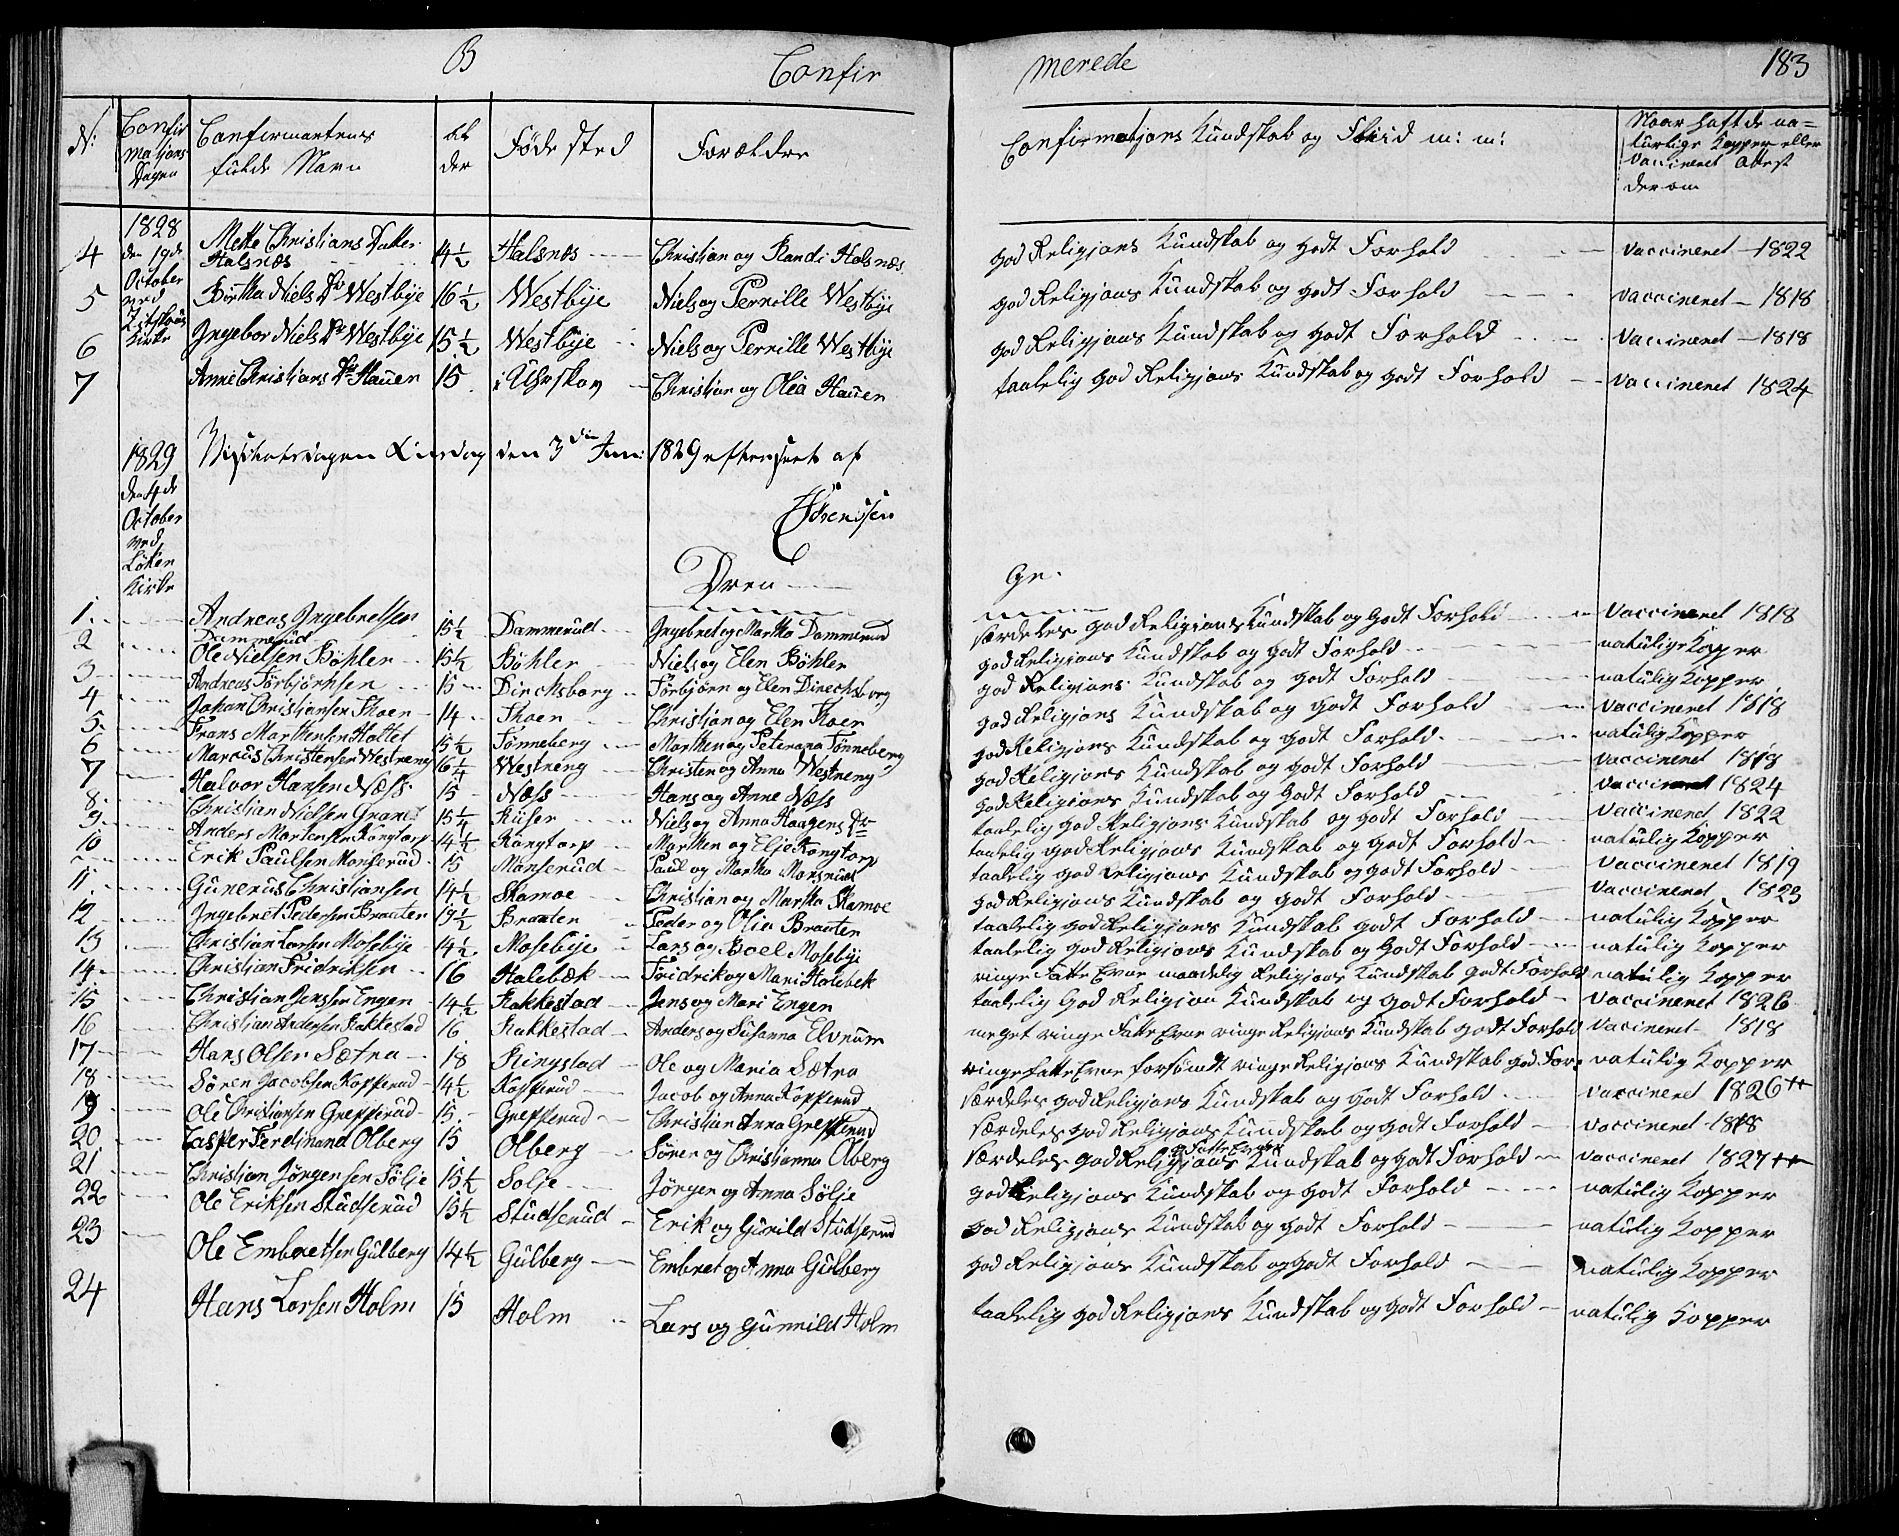 B Confirmerede 183
N: Confirmations Dagen Confirmantens fulde Navn Alder Fødested Forældre Confirmations Kundskab og Flid m: m: Naar hafte naturlige Kopper eller Vaccineret Attest derom
1828 den 19de October ved Kirke
4 Mette Christians Datter Halsnæs 14½ Halsnæs Christian og Randi Halsnæs god Religions Kundskab og godt Forhold vaccineret 1822
5 Bertha Niels Dr Westbye 16½ Westbye Niels og Pernille Westbye god Religions Kundskab og godt Forhold vaccineret 1818
6 Ingebor Niels Dr Westbye 15½ Westbye Niels og Pernille Westbye god Religions Kundskab og godt Forhold vaccineret 1818
7 Anne Christians Dr Hauer 15 i Uhrskog Christian og Olea Hauer taalelig god Religions Kundskab og godt Forhold vaccineret 1824
Visitatsdagen den 3die Juni 1829 efterseet af
Sørenssen
1829 den 4de October ved Løken Kirke
Drenge
1 Andreas Ingebretsen Dammerud 15½ Dammerud Ingebret og Martha Dammerud særdeles god Religions Kundskab og godt Forhold vaccineret 1818
2 Ole Nielsen Bøhler 15½ Bøhler Niels og Elen Bøhler god Religions Kundskab og godt Forhold natulige Kopper
3 Andreas Torbjørnsen 15 Dirchsborg Torbjørn og Elen Direchsborg god Religions Kundskab og godt Forhold natulig Kopper
4 Johan Christiansen Skoer 14 Skoer Christian og Elen Skoer god Religions Kundskab og godt Forhold vaccineret 1818
5 Frans Marthensen Haltet 15½ Tønneberg Marthen og Peterana Tønneberg god Religions Kundskab og godt Forhold natulig Kopper
6 Marcus Christensen Westreng 16¼ Westreng Christen og Anna Westreng god Religions Kundskab og godt Forhold vaccineret 1818
7 Halvor Hansen Næss 15 Næss Hans og Anne Næss god Religions Kundskab og godt Forhold vaccineret 1824
8 Christian Nielsen 15½ Kiiser Niels og Anna Haagens Dr taalelig god Religions Kundskab og godt Forhold vaccineret 1822
9 Anders Martensen Kongtorp 14½ Kongtorp Marthen og Elje Kongtorp taalelig god Religions Kundskab og godt Forhold natulig Kopper
10 Erik Paulsen Monserud 15 Monserud Paul og Martha Monsrud taalelig god Religions Kundskab og godt Forhold vaccineret 1819
11 Gunerus Christiansen 14½ Skamoe Christian og Martha Skamoe god Religions Kundskab og godt Forhold vaccineret 1823
12 Ingebret Pedersen Brauter 19½ Brauter Peder og Olia Brauter taalelig god Religions Kundskab godt Forhold natulig Kopper
13 Christian Larsen Mosebye 14½ Mosebye Lars og Boel Mosebye taalelig god Religions Kundskab og godt Forhold natulig Kopper
14 Christian Fridriksen 16 Holebæk Fridrik og Mari Holebek ringe Fatte Evne maadelig Religions Kundskab godt Forhold natulig Kopper
15 Christian Jenssen Engen 14½ Rakkestad Jens og Mari Engen taalelig god Religion Kundskab og godt Forhold vaccineret 1826
16 Christian Andersen Rakkestad 16 Rakkestad Anders og Susanna Elvrum meget ringe Fatte Evne ringe Religions Kundskab godt Forhold vaccineret 1818
17 Hans Olsen Sætra 18 Ringstad Ole og Maria Sætra ringe Fatte Evne forsømt ringe Religions Kundskab god For: natulig Kopper
18 Søren Jacobsen Kopperud 14½ Kopperud Jacob og Anna Kopperud særdeles god Religions Kundskab og godt Forhold vaccineret 1826 ++
19 Ole Christiansen Grepperud 15 Grepperud Christian Anna Grepperud særdeles god Religions Kundskab og godt Forhold vaccineret 1818
20 Casper Ferdinand Olberg 15 Olberg Sören og Christianna Olberg særdeles god Religions og Fatte Evne Kundskab og godt Forhold vaccineret 1827 ++
21 Christian Jørgensen Sølje 15½ Solje Jörgen og Anna Sølje god Religions Kundskab og godt Forhold natulig Kopper
22 Ole Eriksen Studserud 15½ Studserud Erik og Gunild Studserud god Religions Kundskab og godt Forhold natulig Kopper
23 Ole Embretsen Gulberg 14½ Gulberg Embret og Anna Gulberg god Religions Kundskab og godt Forhold natulig Kopper
24 Hans Larsen Holm 15 Holm Lars og Gunnild Holm taalelig god Religions Kundskab og godt Forhold natulig Kopper